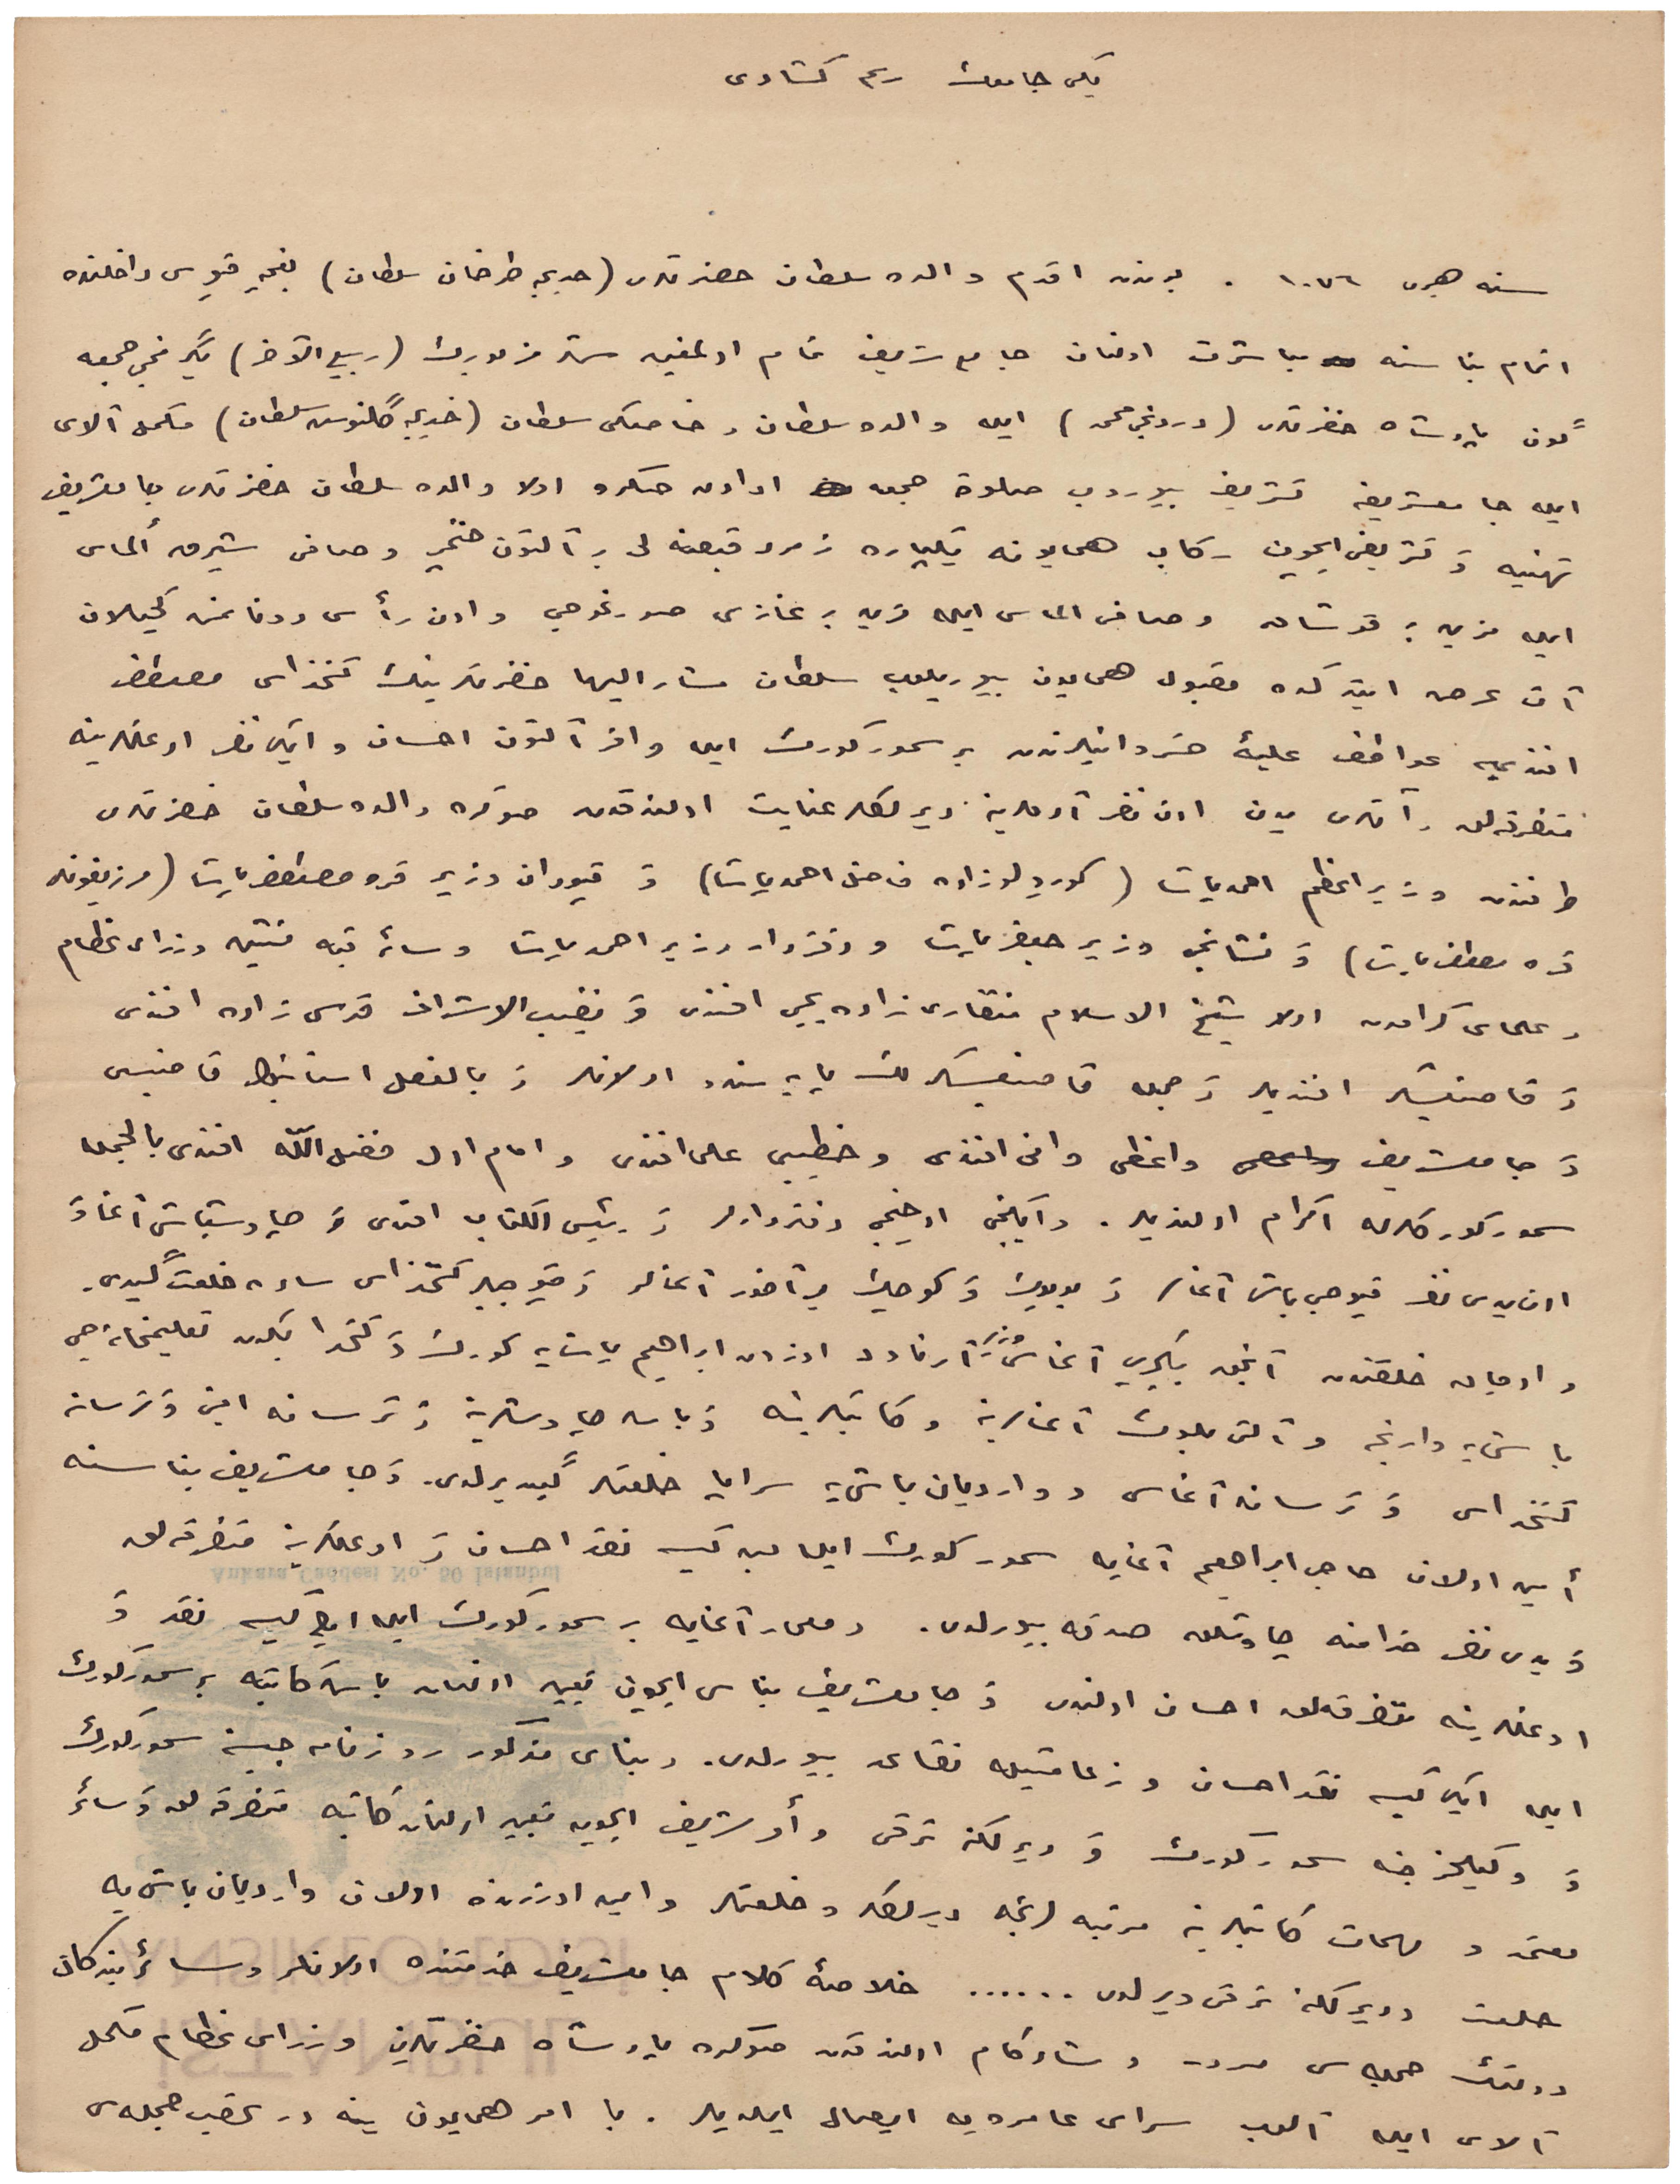 یکی جامعك رسم کشادی
سنه هجری ١٠٧٦ . بوندن اقدم والده سلطان حضرتلری (خدیجه طرخان سلطان) بغچه قپوسی داخلنده
اتمام بناسنه مباشرت اولنان جامع شریف تمام اولمغین شهر مزبورك (ربیع الآخر) یگرمنجی جمعه
گون پادشاه حضرتلری (دردنجی محمد) ایله والده سلطان و خاصکی سلطان (خدیجه گلنوس سلطان) مکمل آلای
ایله جامعشریفه تشریف بیوروب صلوة جمعه ادادن صکره اولا والده سلطان حضرتلری جامعشریفی
تهنیه و تشریفی ایچون رکاب همایونه یکپاره زمرد قبضه لی بر آلتون خنجر و صافی شیرمه ألماس
ایله مزین بر قوشاق و صافی الماس ایله مزین بر غازی صورغوجی و اون رأس دونانمش کحیلان
آت عرض ایتدکده مقبول همایون بیوریلوب سلطان مشار الیها حضرتلرینك کتخداسی مصطفی
افندی یه عواطف علیهٔ خسروانیلرندن بر سمور کورك ایله وافر آلتون احسان و ایکی نفر اوغللرینه
متفرقه لق و آتلری یدن اون نفر آدملرینه دیرلکلر عنایت اولندقدن صوکره والده سلطان حضرتلری
طرفندن وزیر اعظم احمد پاشا (کوپریلوزاده فاضل احمد پاشا) و قپودان وزیر قره مصطفی پاشا (مرزیفونلی
قره مصطفی پاشا) و نشانجی وزیر جعفر پاشا و دفتردار وزیر احمد پاشا و سائر قبه نشین وزرای عظام
و علمای کرامدن اولا شیخ الاسلام منقاری زاده یحیی افندی و نقیب الاشراف قدسی زاده افندی
و قاضیعسکر افندیلر و جمله قاضیعسکرلك پایه سنده اولانلر و بالفعل استانبول قاضیسی
و جامعشریف واعظی وانی افندی و خطیبی علی افندی و امام اول فضل الله افندی بالجمله
سمور کورکلرله اکرام اولندیلر . و ایکنجی اوچنجی دفتردارلر و رئیس الکتاب افندی و چاوشباشی آغا و
اون یدی نفر قپوجی باشی آغالر و بویوك و کوچك میرآخور آغالر و قپوجیلر کتخداسی ساده خلعت گیدی.
و اوجاق خلقندن آنجق یکیچری آغاسی وزیر آرناود اوزون ابراهیم پاشایه کورك و کتخدا بکدن تعلیمخانه جی
باشی یه وارنجه و آلتی بلوك آغالرینه و کاتبلرینه و باش چاوشلرینه و ترسانه امینی و ترسانه
کتخداسی و ترسانه آغاسی و واردیان باشی یه سراپا خلعتلر گیدیرلدی. و جامعشریف بناسنه
أمین اولان حاجی ابراهیم آغایه سمور کورك ایله بش کیسه نقد احسان و اوغللرینه متفرقه لق
و یدی نفر خدامنه چاوشلق صدقه بیورلدی. و معمار آغایه بر سمور کورك ایله اوچ کیسه نقد و
اوغللرینه متفرقه لق احسان اولندی و جامعشریف بناسی ایچون تعیین اولنان باش کاتبه بر سمور کورك
ایله ایکی کیسه نقد احسان و زعامتیله تقاعد بیورلدی. و بنای مذکور روزنامه جیسنه سمور کورك
و وکیلخرجنه سمور کورك و دیرلکنه ترقی و أو شریف ایچون تعیین اولنان کاتبه متفرقه لق و سائر
معتمد و مهمات کاتبلرینه مرتبه لرنجه دیرلکلر و خلعتلر و امین اوزرنده اولان واردیان باشی یه
خلعت و دیرلکنه ترقی ویرلدی ...... خلاصهٔ کلام جامعشریف خدمتنده اولانلر و سائر بندکان
دولتك جمله سی مسرور و شادکام اولندقدن صوکره پادشاه حضرتلرینی وزرای عظام مکمل
آلای ایله آلوب سرای عامره یه ایصال ایلدیلر . با امر همایون ینه در عقب جمله سی
Ankara Caddesi No. 50 İstanbul